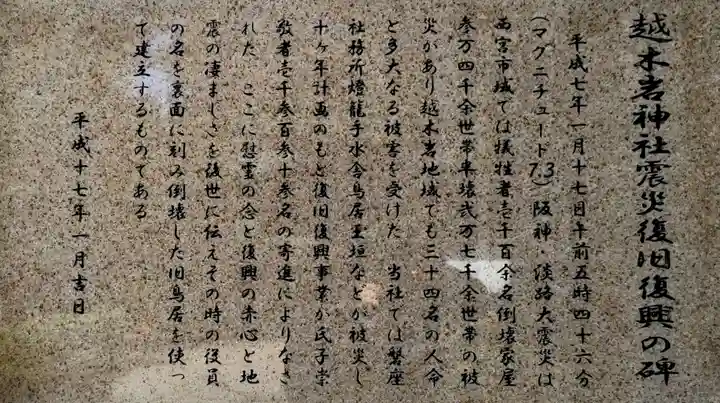 越木岩神社震災復旧復興の碑
平成七年一月十七日午前五時四十六分
(マグニチュード7.3)阪神・淡路大震災は
西宮市域では犠牲者壱千百余名倒壊家屋
参万四千余世帯半壊弐万七千余世帯の被
災があり越木岩地域でも三十四名の人命
と多大なる被害を受けた 当社では磐座
社務所燈籠手水舎鳥居玉垣などが被災し
十ヶ年計画のもと復旧復興事業が氏子崇
敬者壱千参百参十参名の寄進によりなさ
れた ここに慰霊の念と復興の赤心と地
震の凄まじさを後世に伝えその時の役員
の名を裏面に刻み倒壊した旧鳥居を使っ
て建立するものである
平成十七年一月吉日